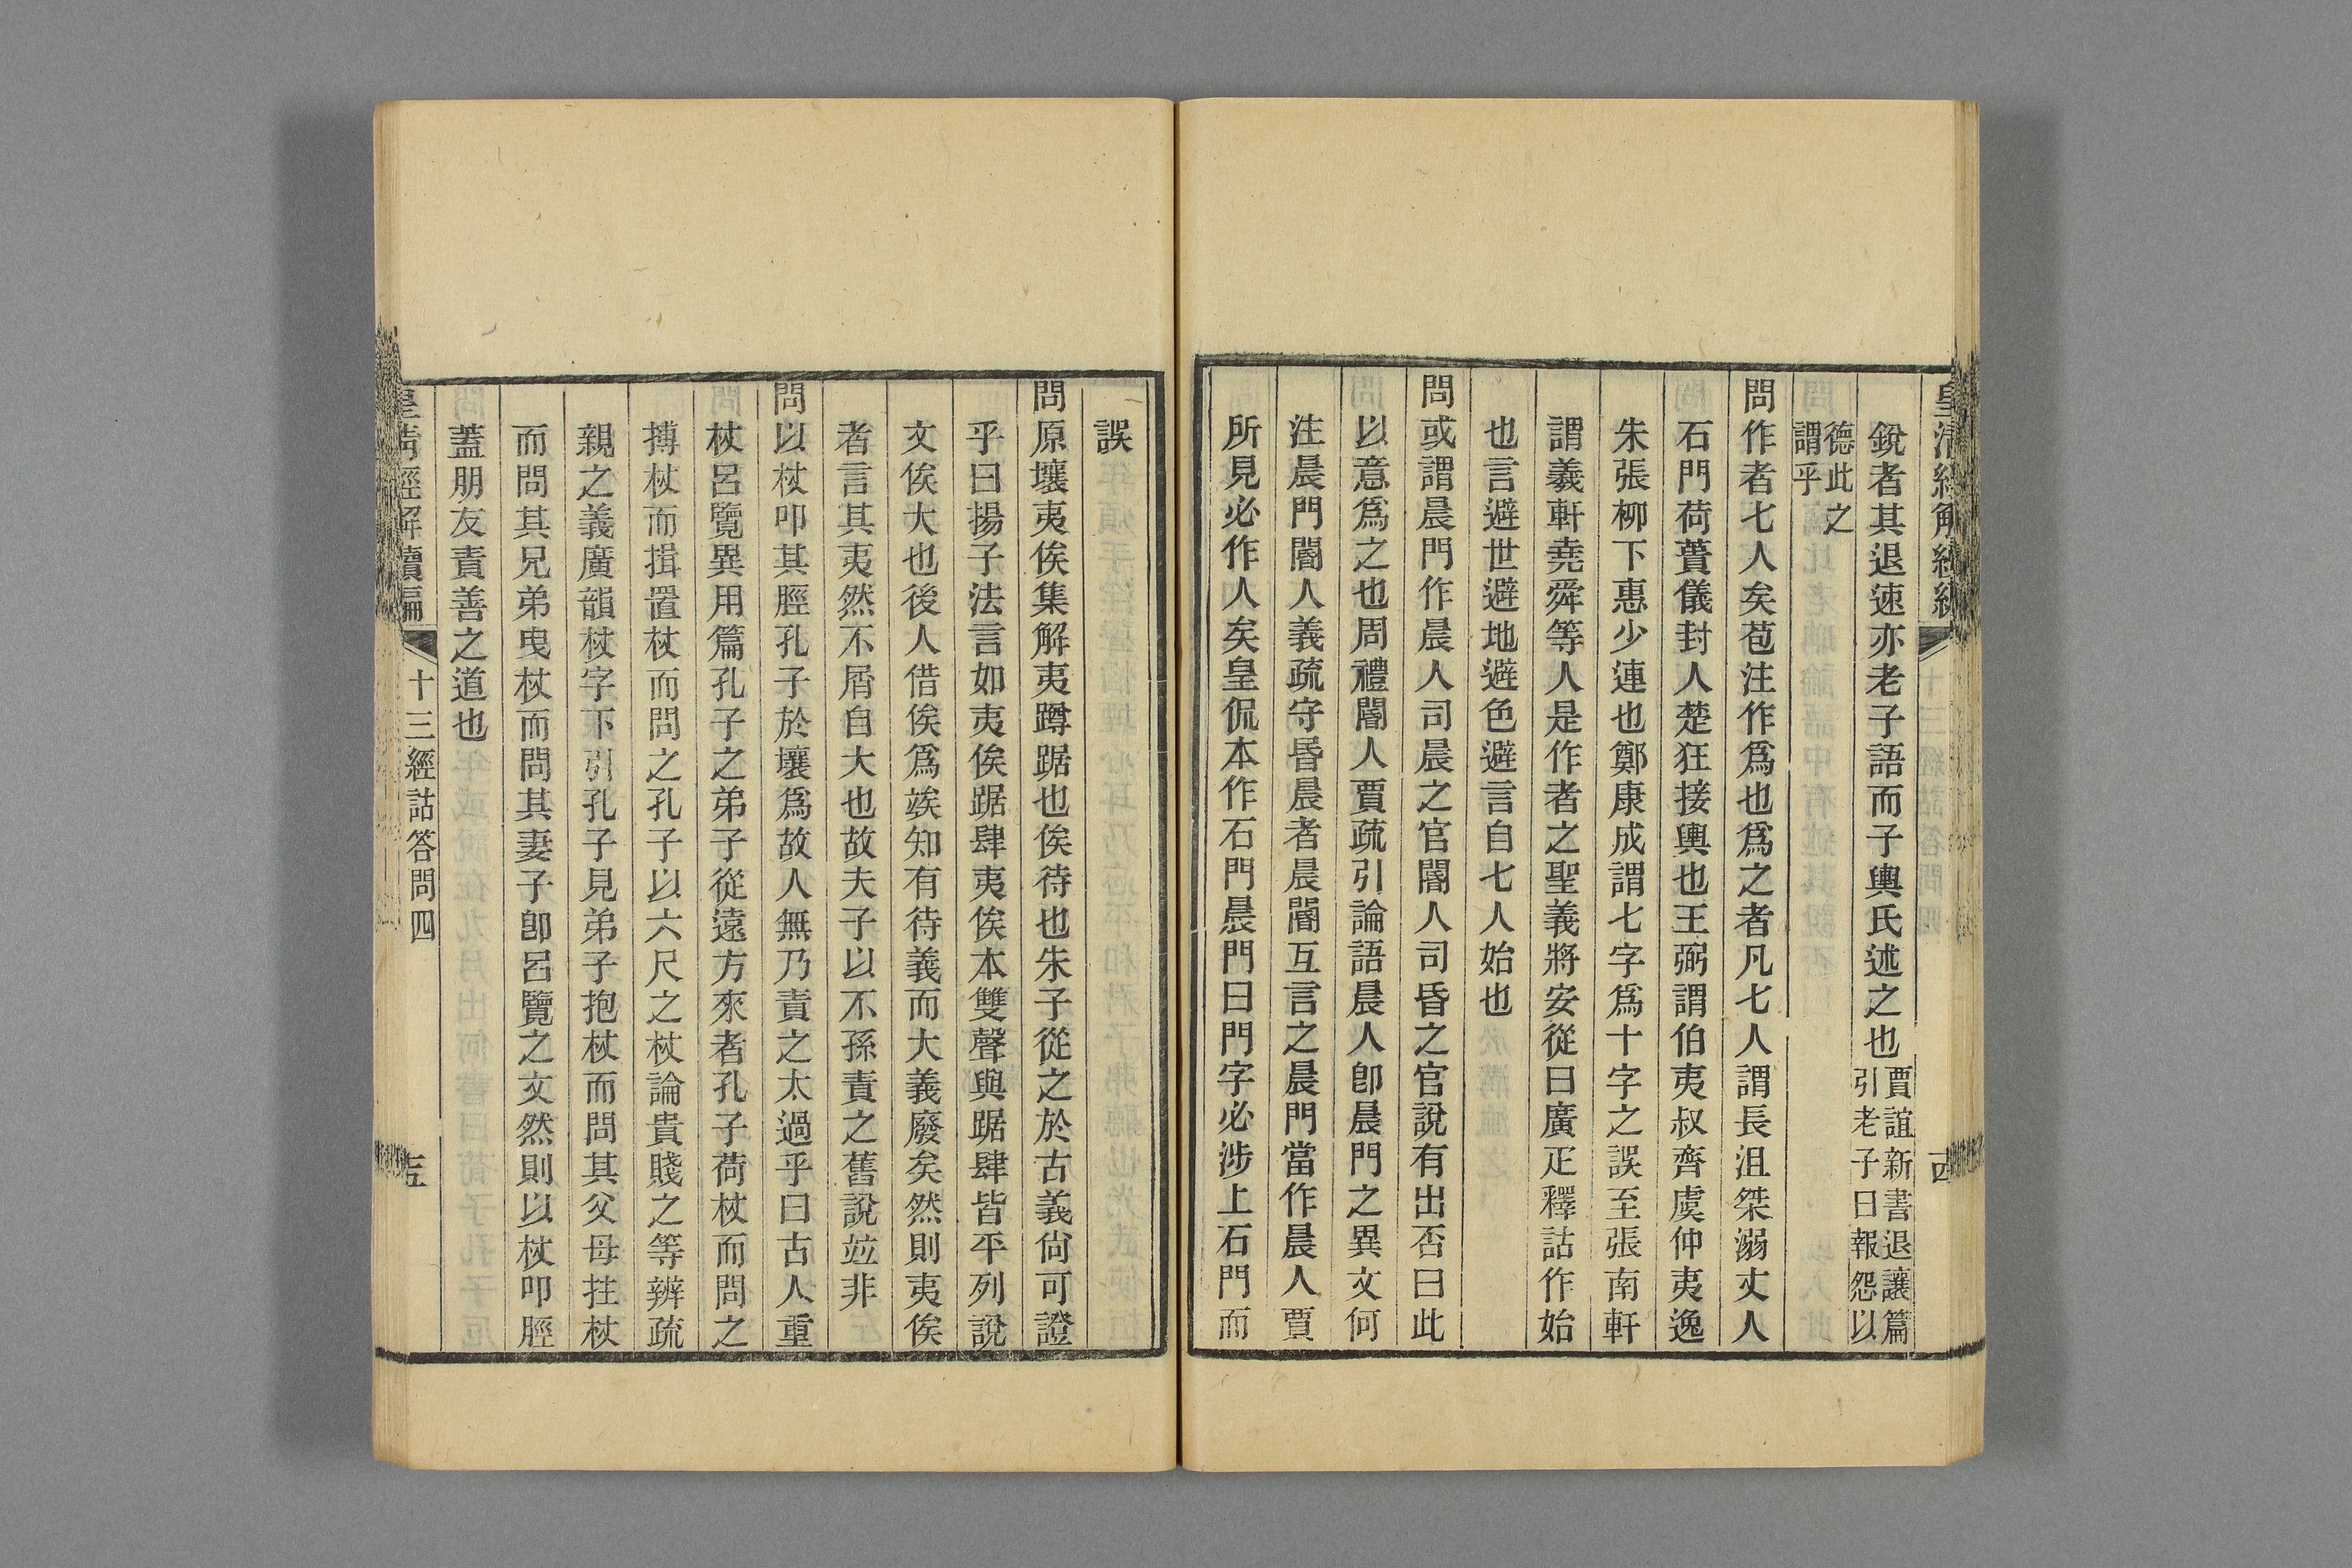 皇清經解續編
銳者其退速亦老子語而子輿氏述之也賈誼新書退讓篇引老子曰報怨以
德此之謂乎
問作者七人矣苞注作爲也爲之者凡七人謂長沮桀溺丈人
石門荷蕢儀封人楚狂接輿也王弼謂伯夷叔齊虞仲夷逸
朱張柳下惠少連也鄭康成謂七字爲十字之誤至張南軒
謂義軒堯舜等人是作者之聖義將安從曰廣疋釋詁作始
也言避世避地避色避言自七人始也
問或謂晨門作晨人司晨之官閽人司昏之官說有出否曰此
以意爲之也周禮閽人賈疏引論語晨人卽晨門之異文何
注晨門閽人義疏守昬晨者晨閽互言之晨門當作晨人賈
所見必作人矣皇侃本作石門晨門曰門字必涉上石門而
誤
問原壤夷俟集解夷蹲踞也俟待也朱子從之於古義尙可證
乎曰揚子法言如夷俟踞肆夷俟本雙聲與踞肆皆平列說
文俟大也後人借俟爲竢知有待義而大義廢矣然則夷俟
者言其夷然不屑自大也故夫子以不孫責之舊說竝非
問以杖叩其脛孔子於壤爲故人無乃責之太過乎曰古人重
杖呂覽異用篇孔子之弟子從遠方來者孔子荷杖而問之
搏杖而揖置杖而問之孔子以六尺之杖論貴賤之等辨疏
親之義廣韻杖字下引孔子見弟子抱杖而問其父母拄杖
而問其兄弟曳杖而問其妻子卽呂覽之文然則以杖叩脛
蓋朋友責善之道也
皇清經解續編 十三經詁答問四